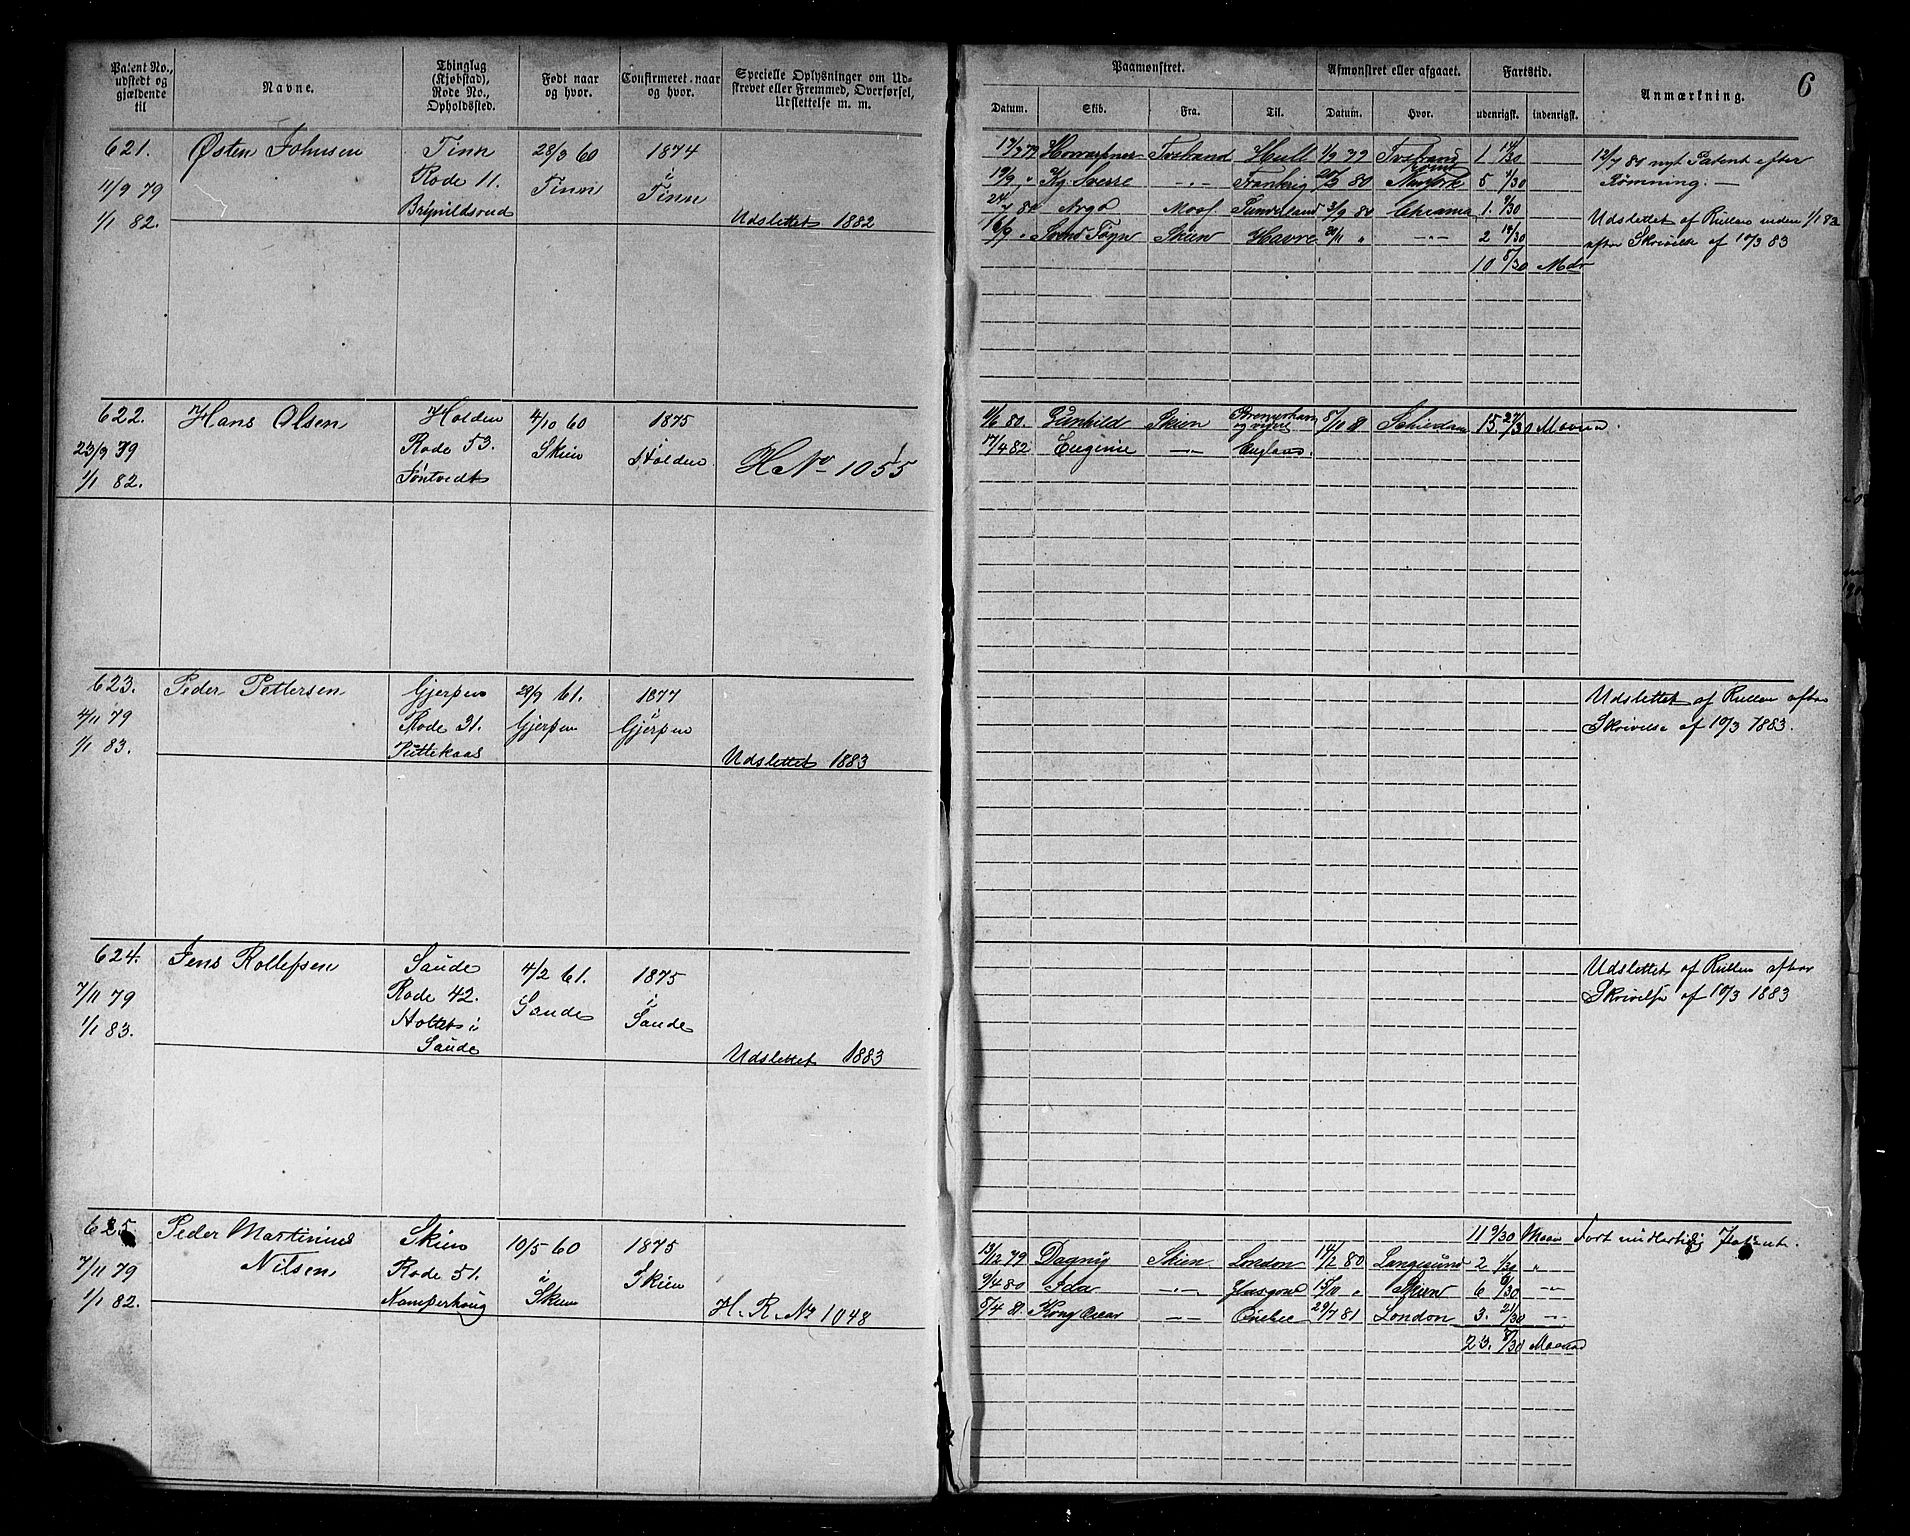 Patent No., udstedt og gjældende til
Navne.
Thinglag (Kjøbstad), Rode No., Opholdssted.
Født naar og hvor.
Confirmeret naar og hvor.
Specielle Oplysninger om Udskrevet eller Fremmed, Overførsel, Udslettelse m. m.
Paamønstret.
Afmønstret eller afgaaet.
Fartstid.
Anmærkning.
6
Datum.
Skib.
Fra.
Til.
Datum.
Hvor.
udenrigsk.
indenrigsk.
621.
11/9 79
1/1 82.
Østen Johnsen
Tinn
Rode 11.
Brynildsrud
28/3 60
Tinn
1874
i
Tinn
Udslettet 1882
Hull 1/9 79 1 14/30
19/9 " Kg Sverre -"- Frankrig 80 5 1/30
Argo Moss Sunderland 3/9 80 Chrania 1. 9/30
16/9 " Skien Havre 20/11 " -"- 2 14/30
10 8/30 Mdr
12/7 80 nyt Patent efter
Rømning. —
Udslettet af Rullen inden 1/1 83
efter Skrivelse af 10/3 83
622.
23/9 79
1/1 82.
Hans Olsen
Holden
Rode 53.
Tøntvedt
4/10 60
Skien
1875
i
Holden
H No 1055
11/6 80. Gunhild Skien 8/10 81 Schiedam 15. 27/30 Maaned.
17/4 82 Eugenie -"-
623.
4/11 79
1/1 83.
Peder Pettersen
Gjerpen
Rode 21.
29/9 61.
Gjerpen
1877
i
Gjerpen
Udslettet 1883
Udslettet af Rullen efter
Skrivelse af 10/3 1883.
624.
7/11 79
1/1 83.
Jens Rollefsen
Saude
Rode 42.
Holtet i
Saude
4/2 61.
Saude
1875
i
Saude
Udslettet 1883
Udslettet af Rullen efter
Skrivelse af 10/3 1883
625.
7/11 79
1/1 82.
Peder Martinius
Nilsen
Skien
Rode 51.
Kamperhoug
10/5 60
i
Skien
1875
i
Skien
H. R. No 1048
11 9/30 Maan Fart midlertidig Patent.
13/12 79 Dagny Skien London 14/2 80 Langesund 2 1/30 "
9/4 80 -"- Glasgow 15/10 " Skien 6 6/30 -"-
5/4 81. Kong Oscar -"- Quebec 29/7 81 London 3. 21/30 -"-
23. 8/30 Maaned